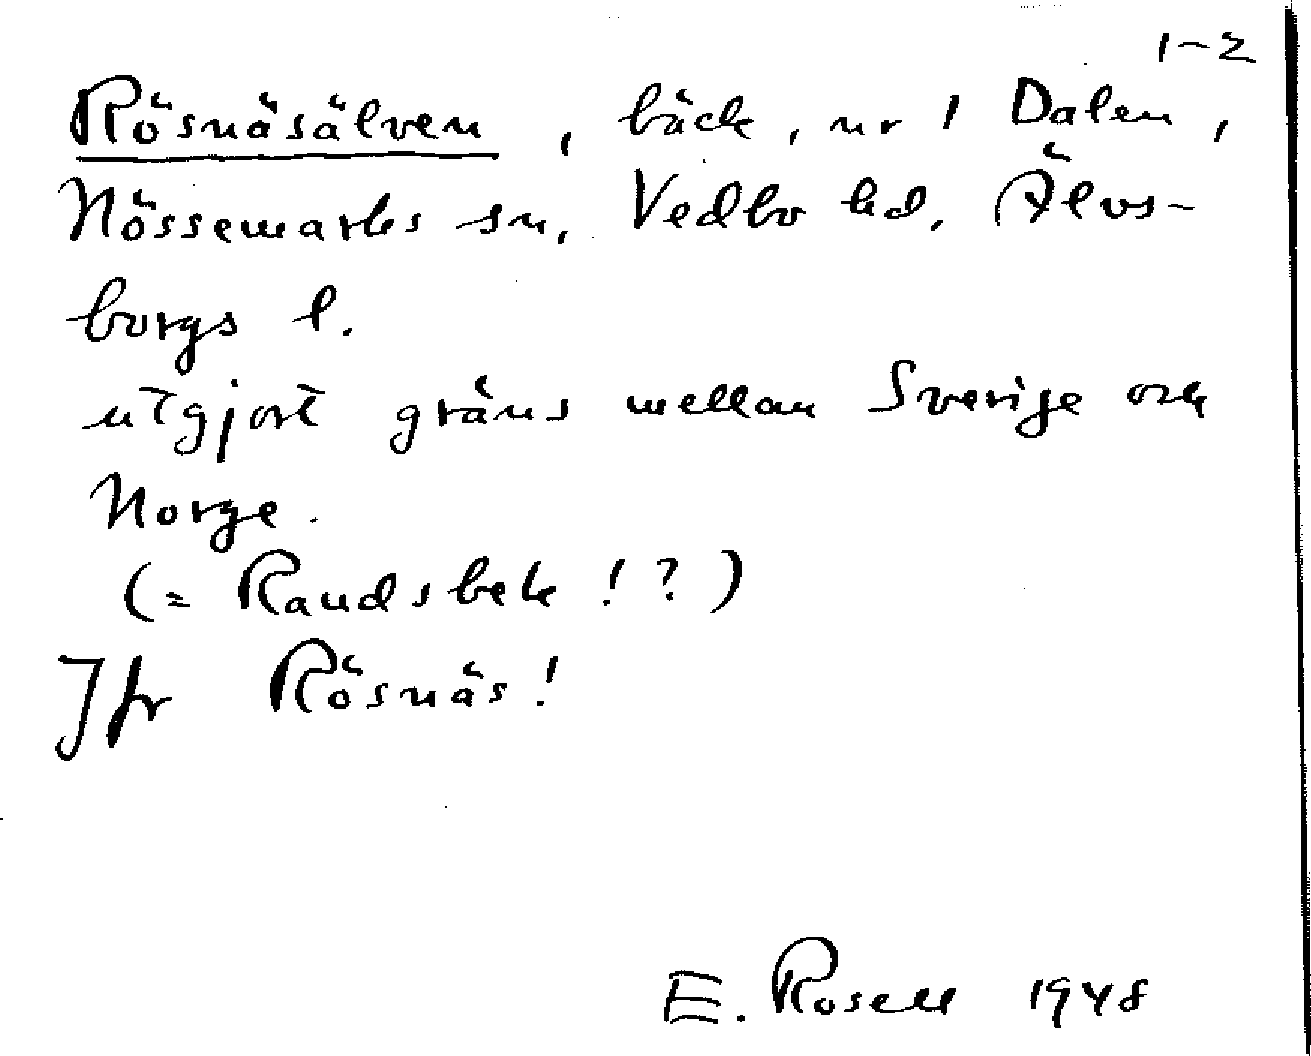 1-2
Rösnäsälven, bäck, nr 1 Dalen,
Nössemarks sn, Vedbo hd, Älvs-
borgs l.
utgjort gräns mellan Sverige och
Norge.
(= Raudsbek !?)
Jfr Rösnäs!
E. Rosell 1948